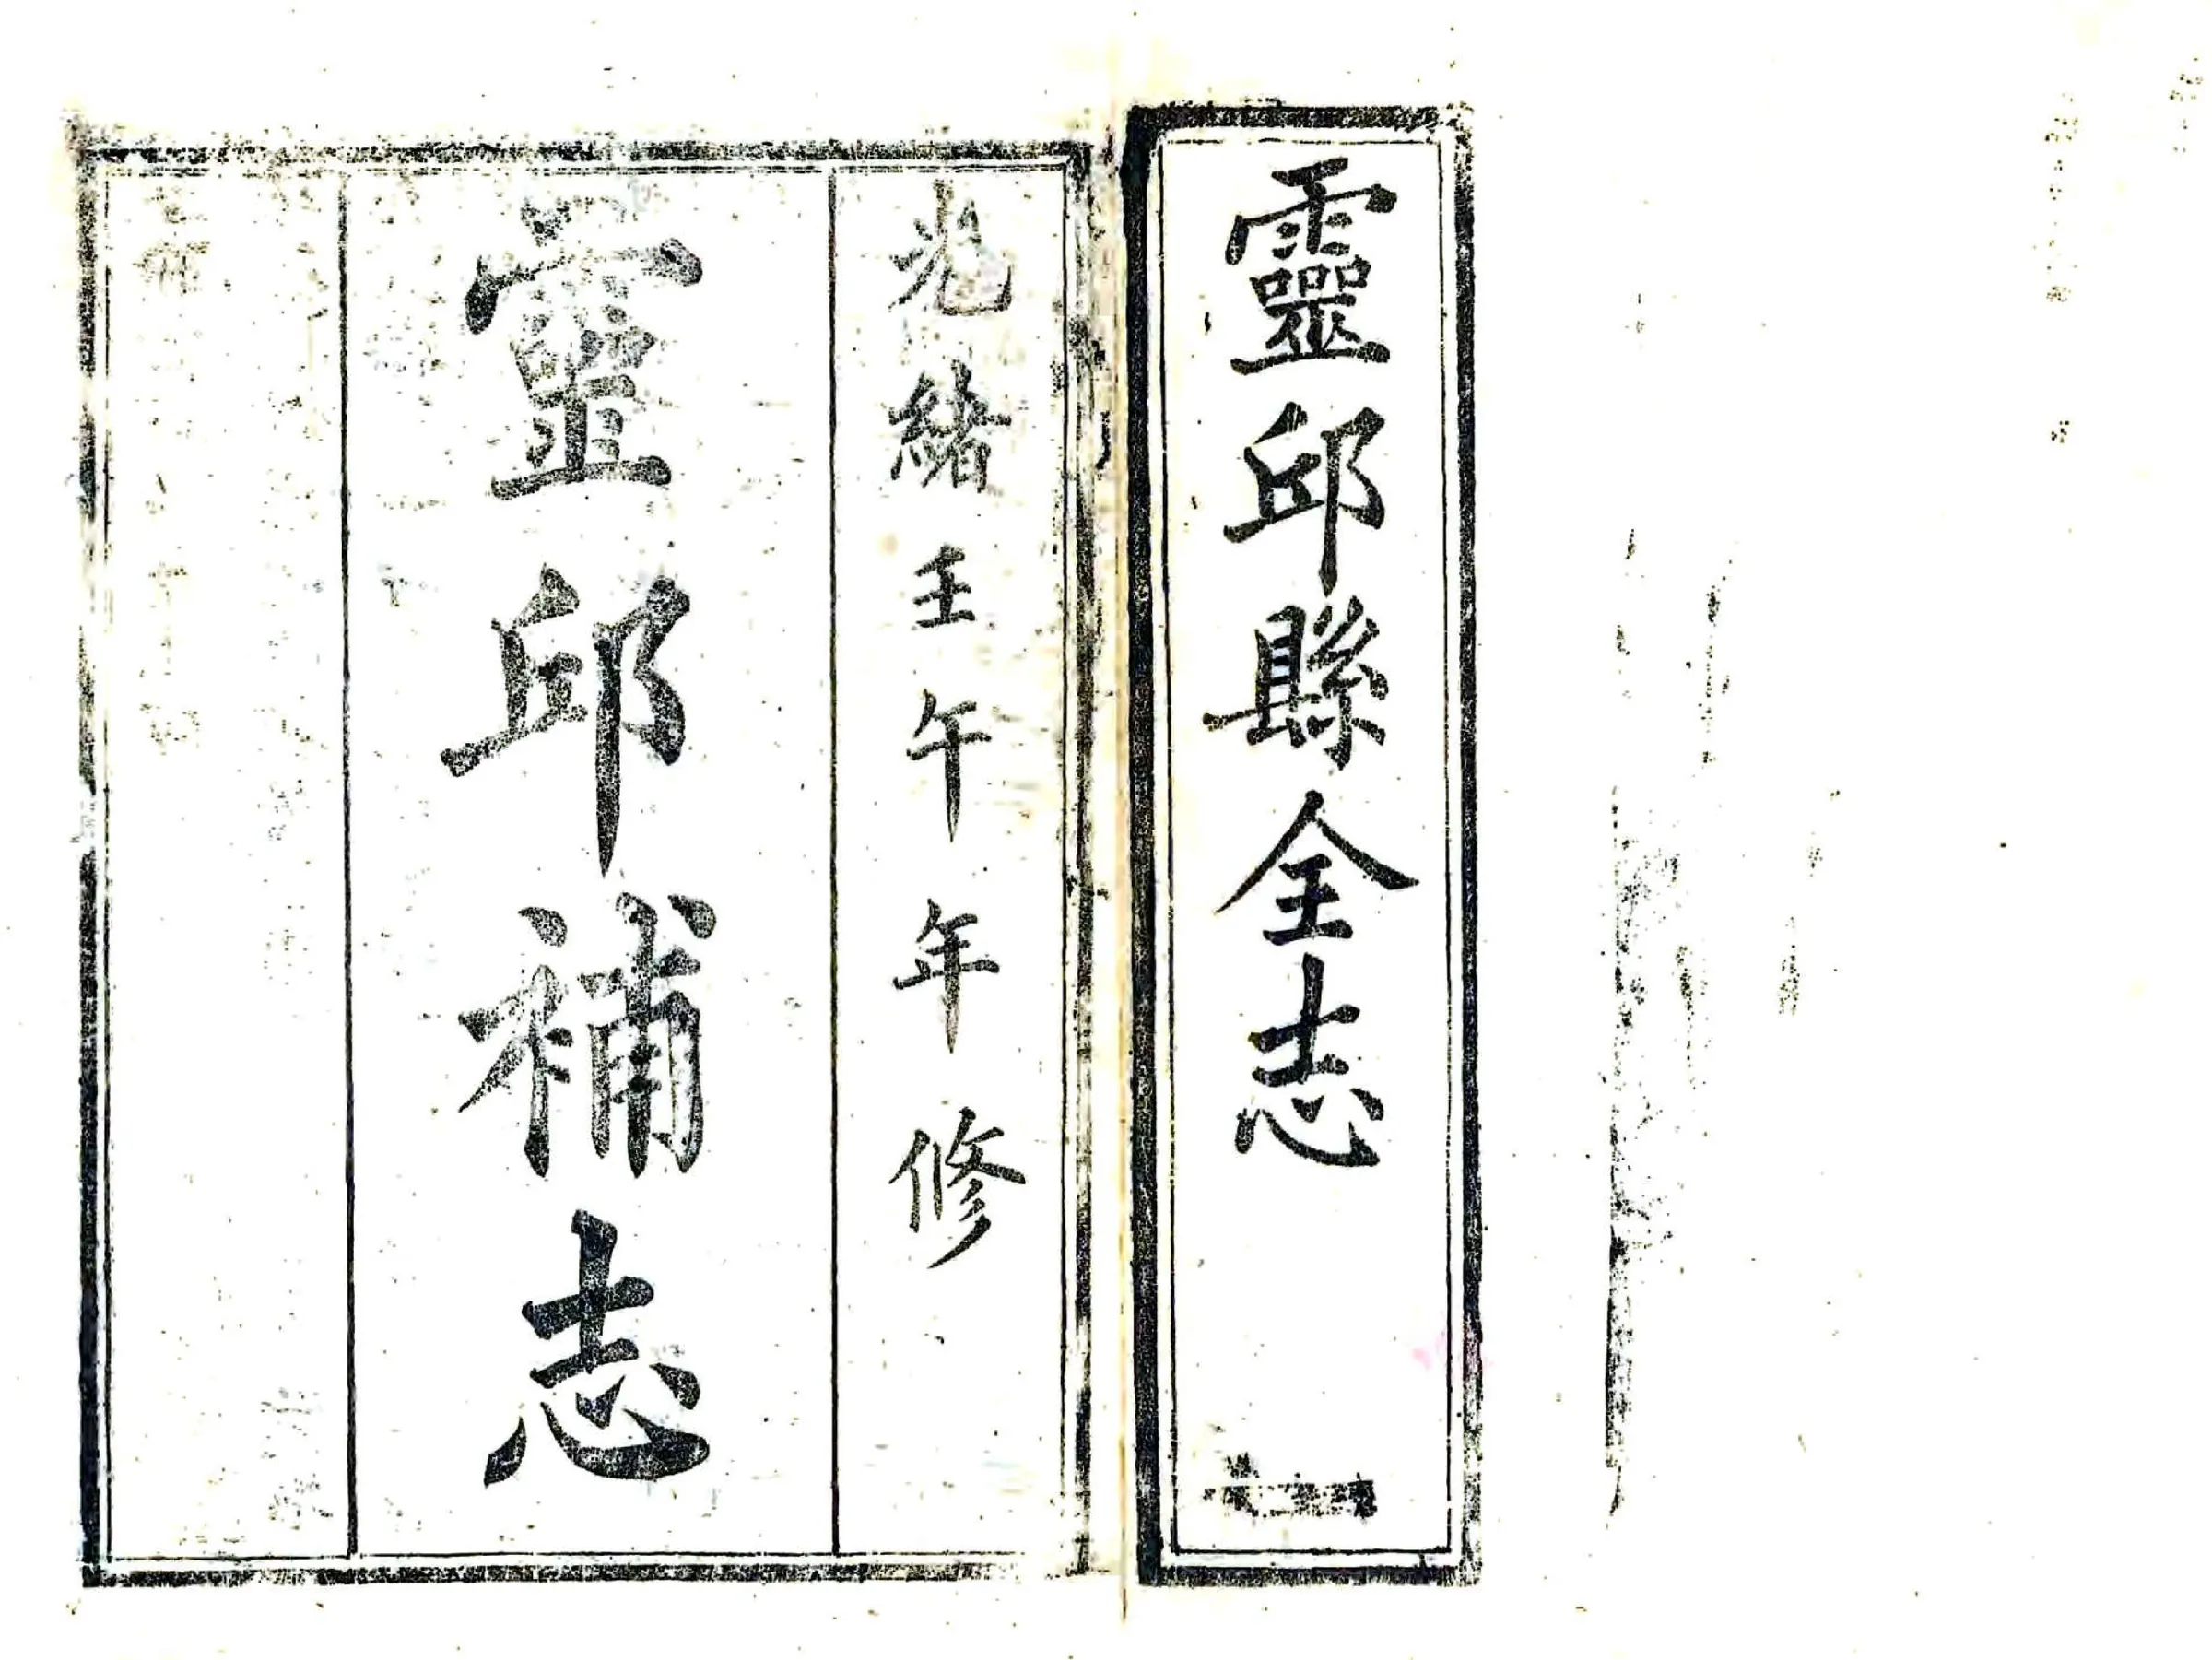 靈邱縣全志
光緒壬午年修
靈邱補志